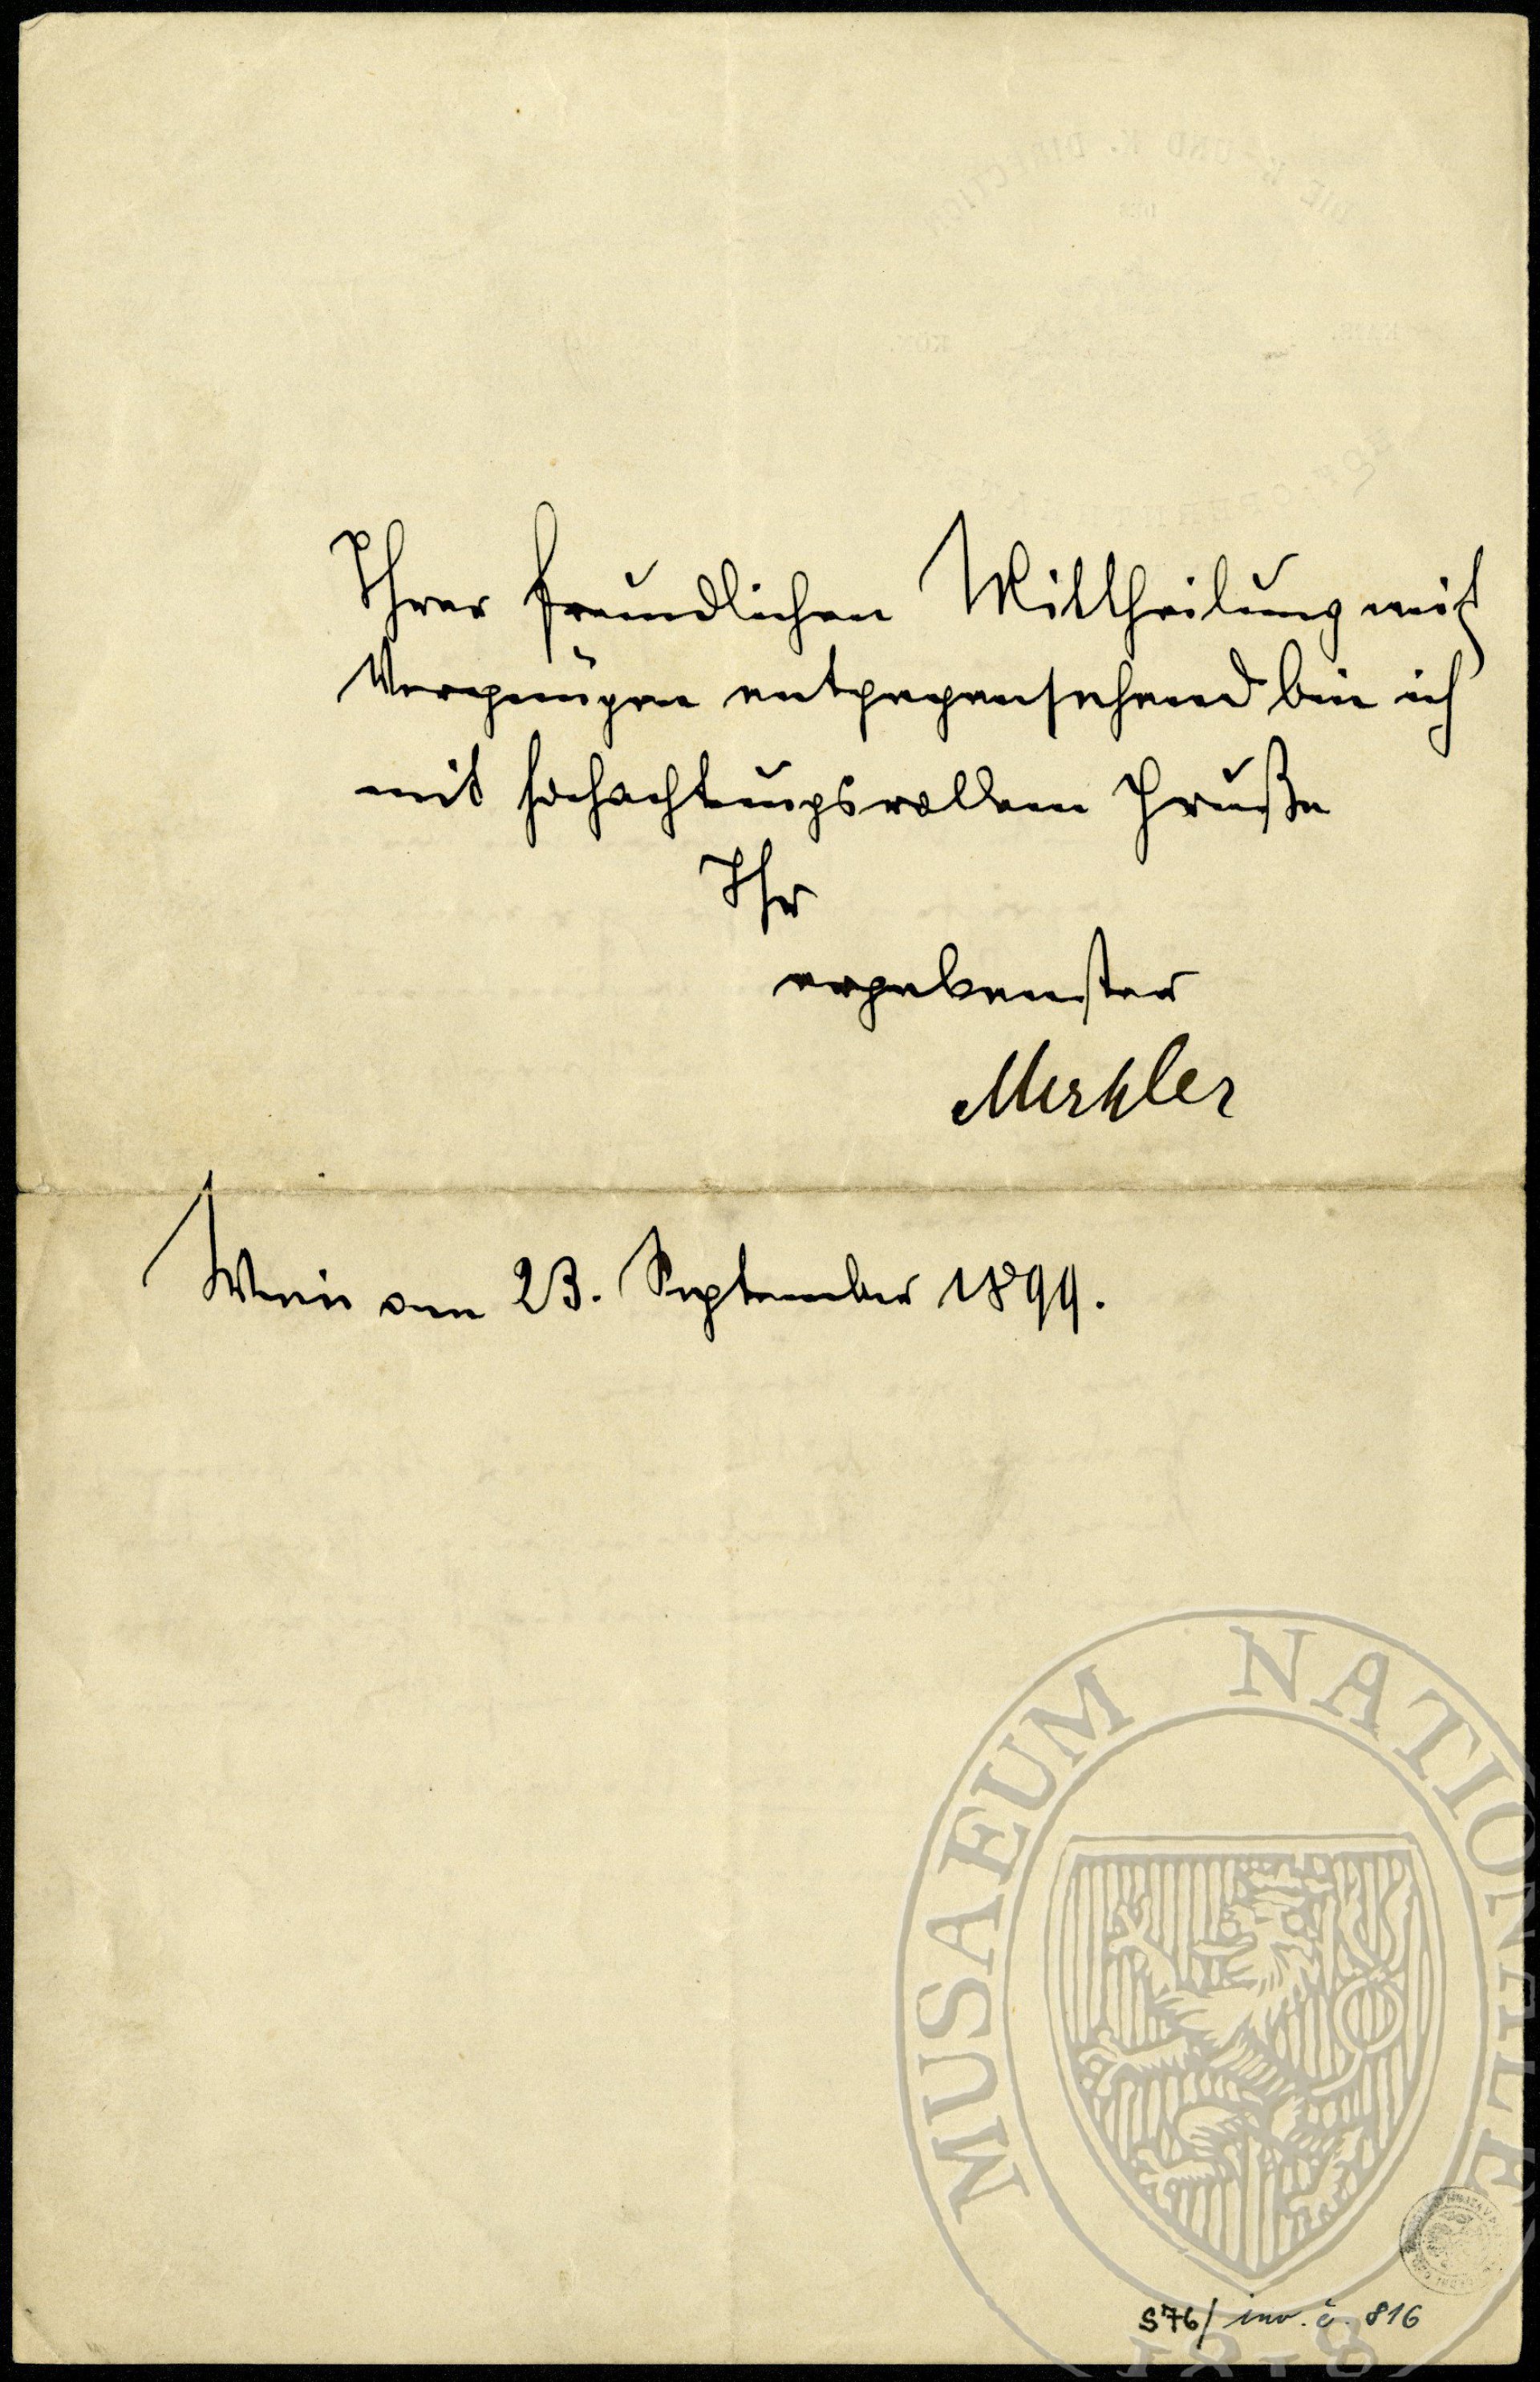 Ihrer freundlichen Mittheilung mit
Vergnügen entgegensehend bin ich
mit hochachtungsvollem Gruße
Ihr
ergebenster
Mahler
Wien am 23. September 1899.
MUSAEUM NATIONALE
1818
S76/ inv. č. 816